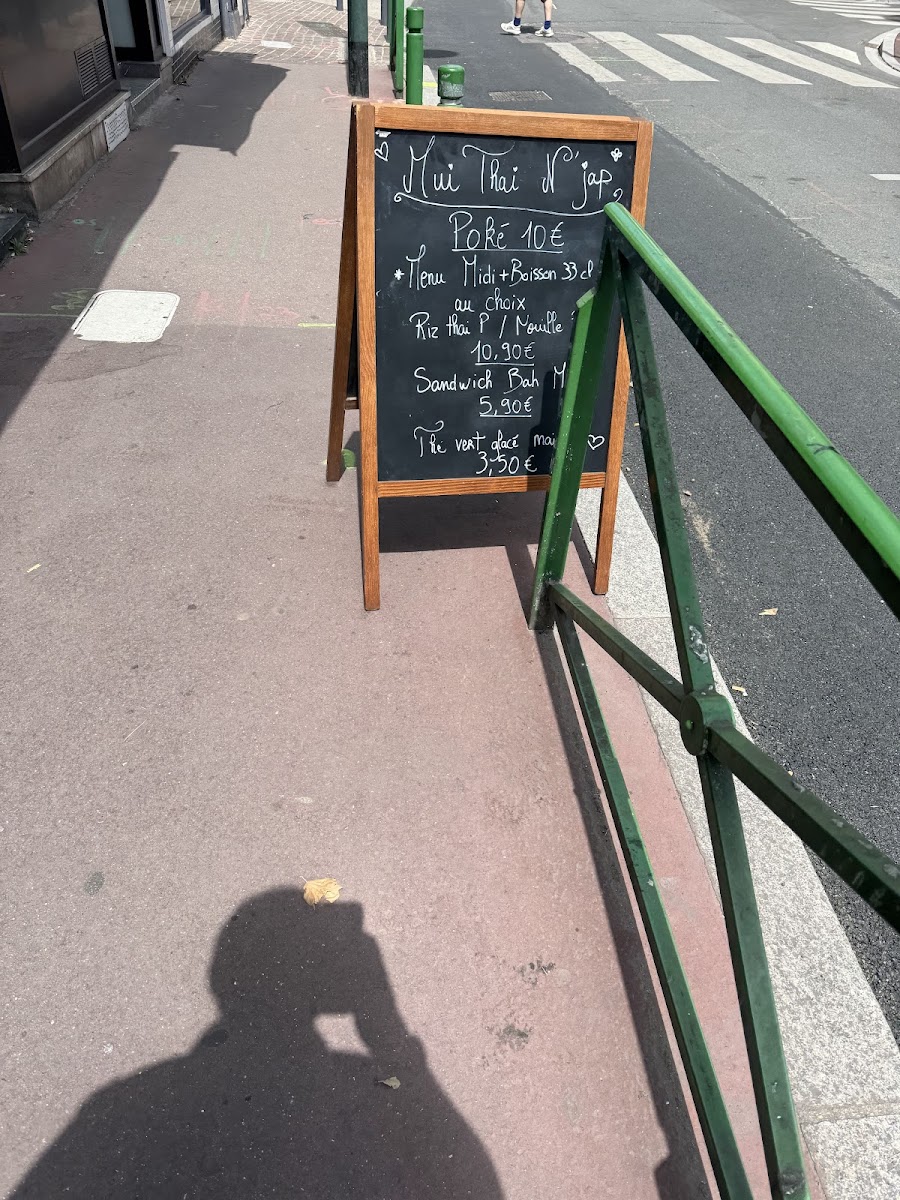 Mui Thai N'jap
Poké 10€
*Menu Midi + Boisson 33 cl
au choix
Riz thai P / Nouille
10,90€
Sandwich Bah M
5,90€
Thé vert glacé mai
3,50€